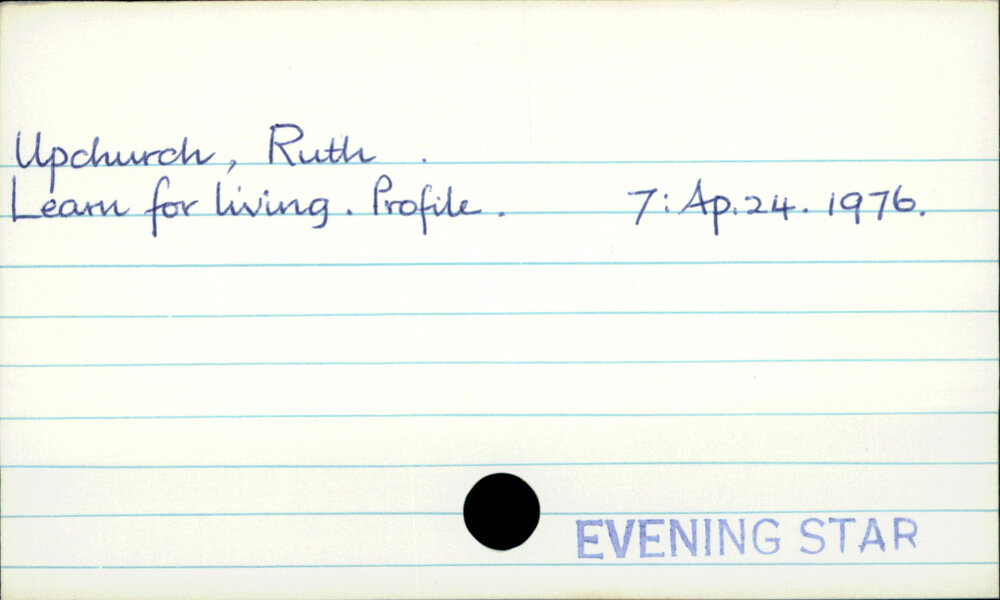 Upchurch, Ruth .
Learn for living. Profile. 7: Ap. 24. 1976.
EVENING STAR